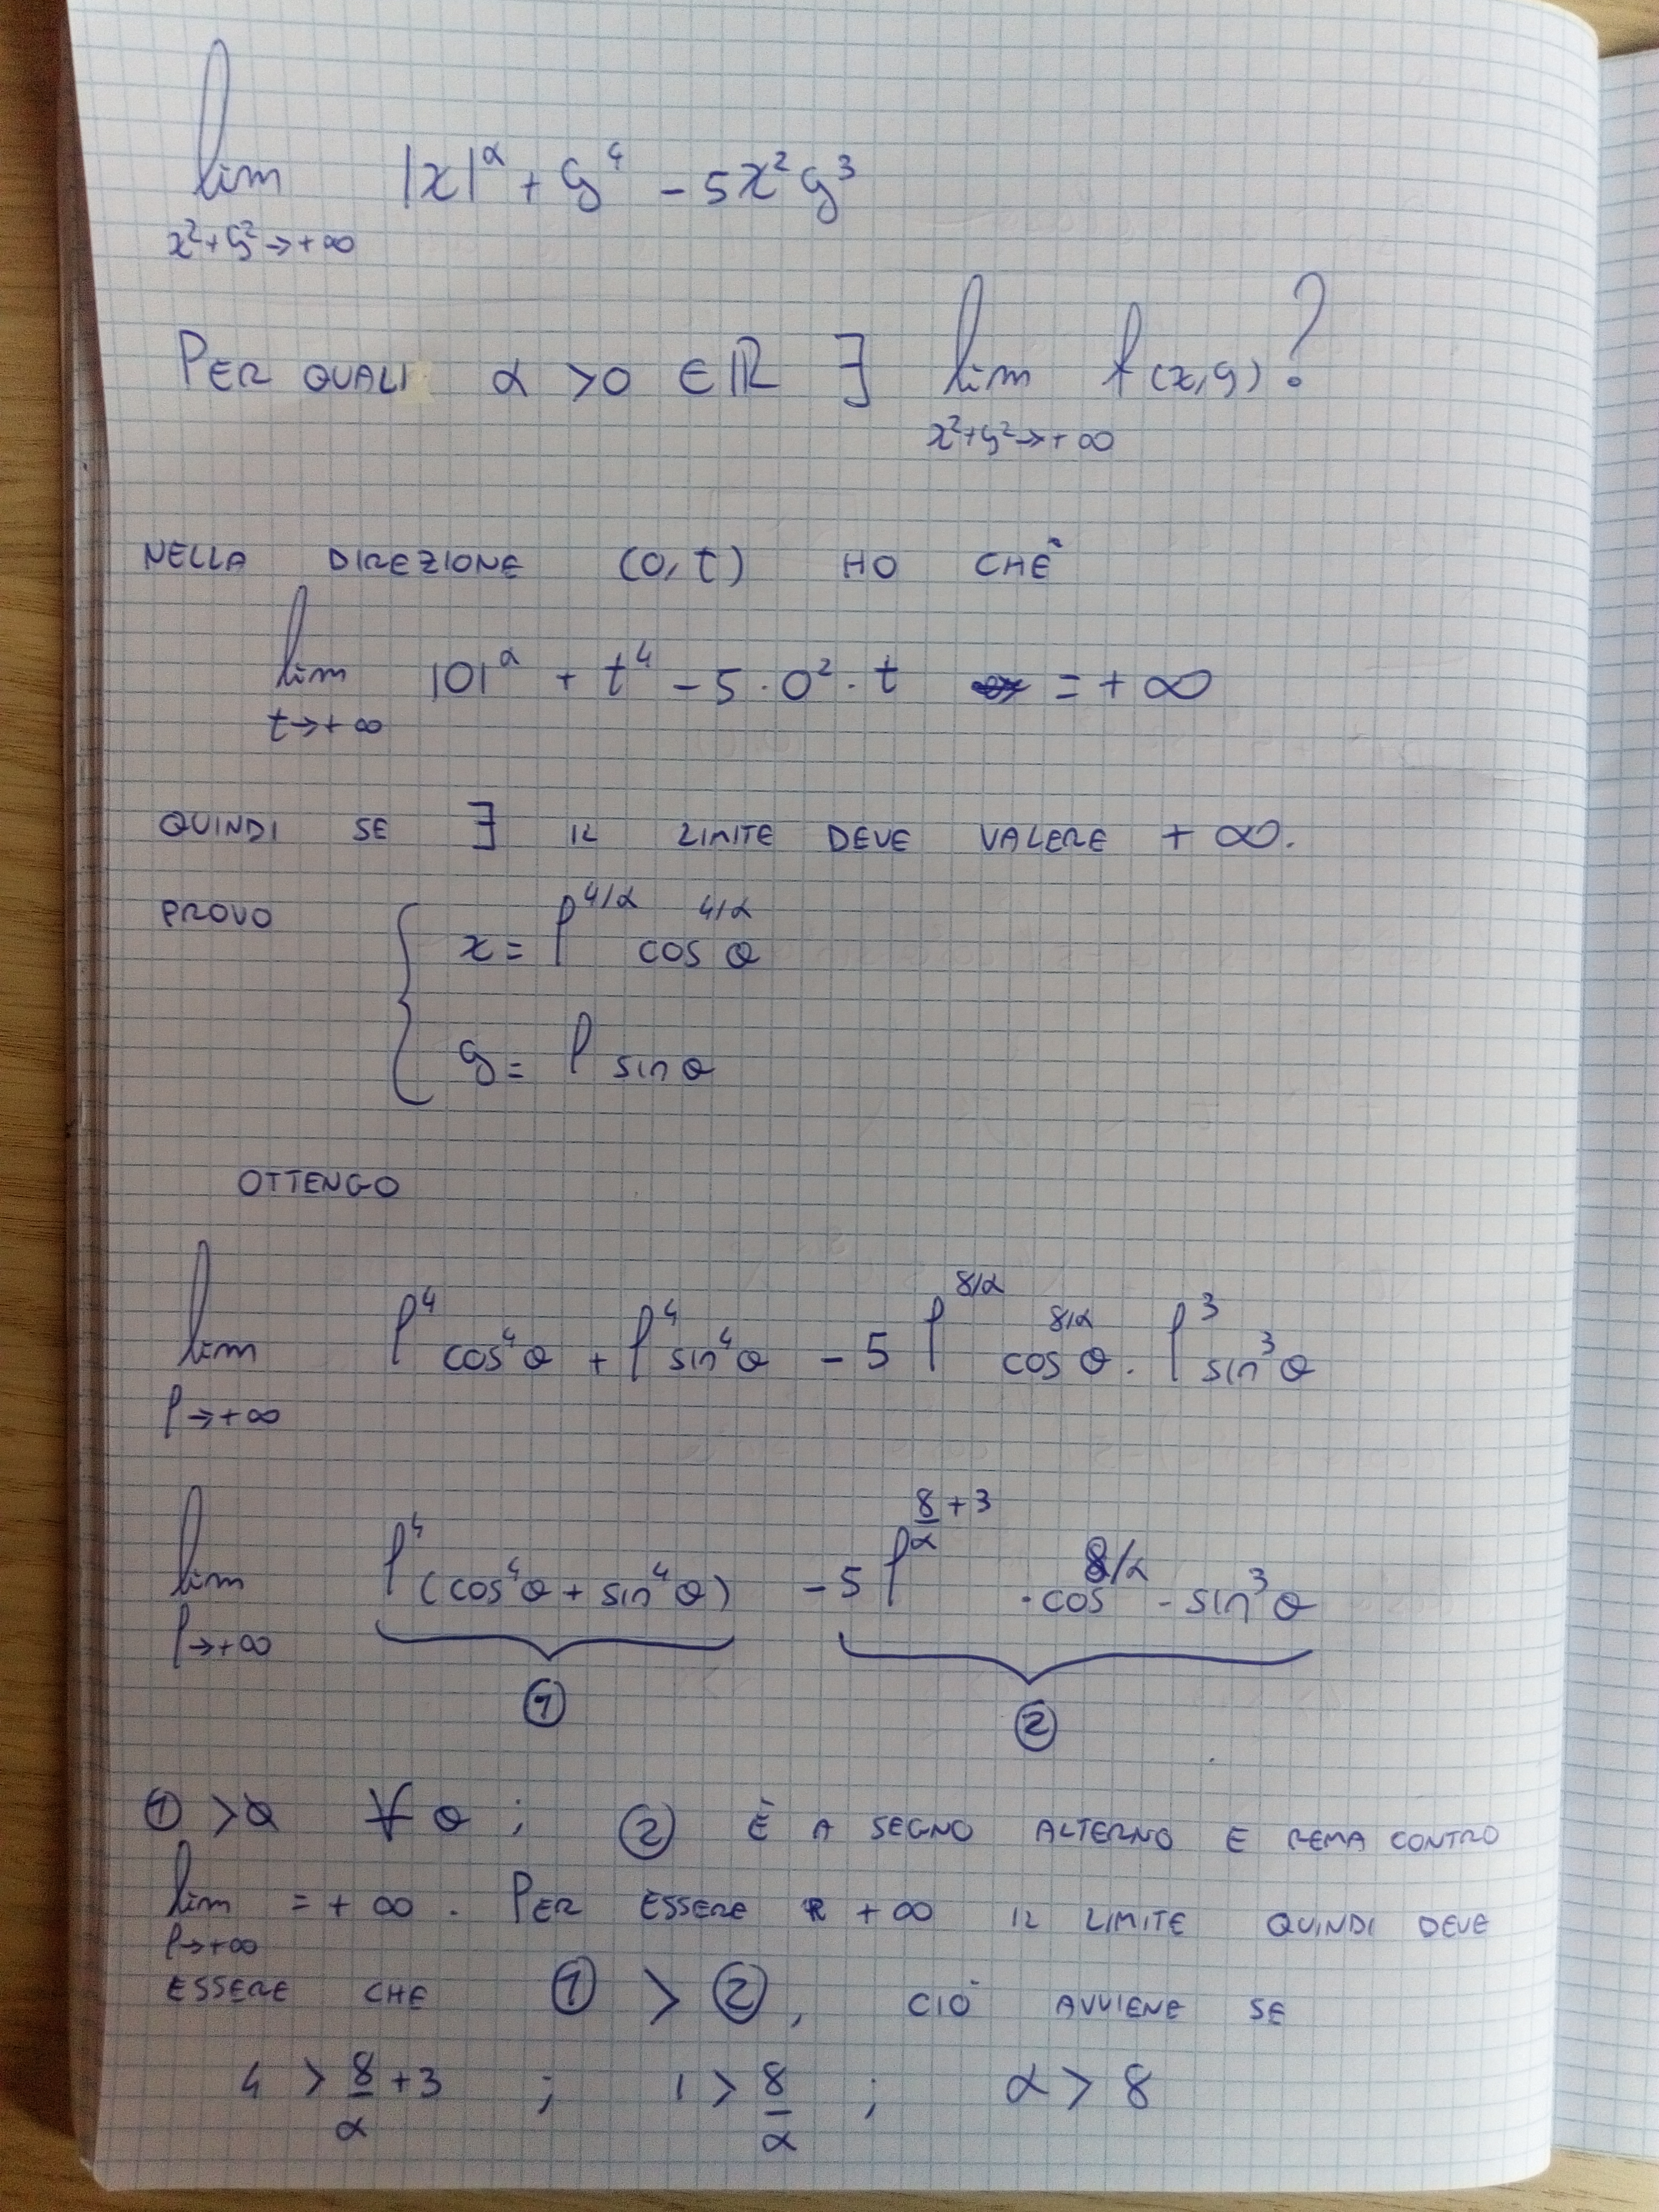 lim |x|^α + y^4 - 5x^2 y^3
x^2+y^2→+∞
PER QUALI α >0 ∈ℝ ∃ lim f(x,y)?
x^2+y^2→+∞
NELLA DIREZIONE (0,t) HO CHE
lim |0|^α + t^4 - 5·0^2·t = +∞
t→+∞
QUINDI SE ∃ IL LIMITE DEVE VALERE +∞.
PROVO { x = ρ^4/α cos^4/α θ
y = ρ sin θ
OTTENGO
lim ρ^4 cos^4 θ + ρ^4 sin^4 θ - 5 ρ^8/α cos^8/α θ · ρ^3 sin^3 θ
ρ→+∞
lim ρ^4 (cos^4 θ + sin^4 θ) - 5 ρ^(8/α + 3) · cos^8/α - sin^3 θ
ρ→+∞
① ②
① >0 ∀ θ ; ② È A SEGNO ALTERNO E REMA CONTRO
lim = +∞. PER ESSERE +∞ IL LIMITE QUINDI DEVE
ρ→+∞
ESSERE CHE ① > ②, CIÒ AVVIENE SE
4 > 8/α +3 ; 1 > 8/α ; α > 8